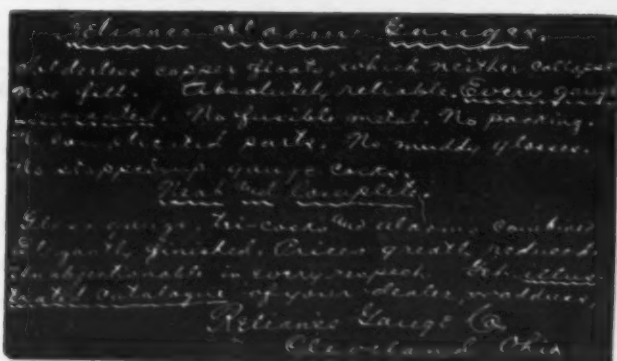 Reliance Alarm Gauges.
Solderless copper floats, which neither collapse
nor fill. Absolutely reliable. Every gauge
warranted. No fusible metal. No packing.
No complicated parts. No muddy glasses.
No stopped-up gauge cocks.
Neat and Complete,
Glass gauge, tri-cocks and alarms combined
Elegantly finished. Prices greatly reduced
Unobjectionable in every respect. Get illus-
trated catalogue of your dealer, or address,
Reliance Gauge Co
Cleveland Ohio